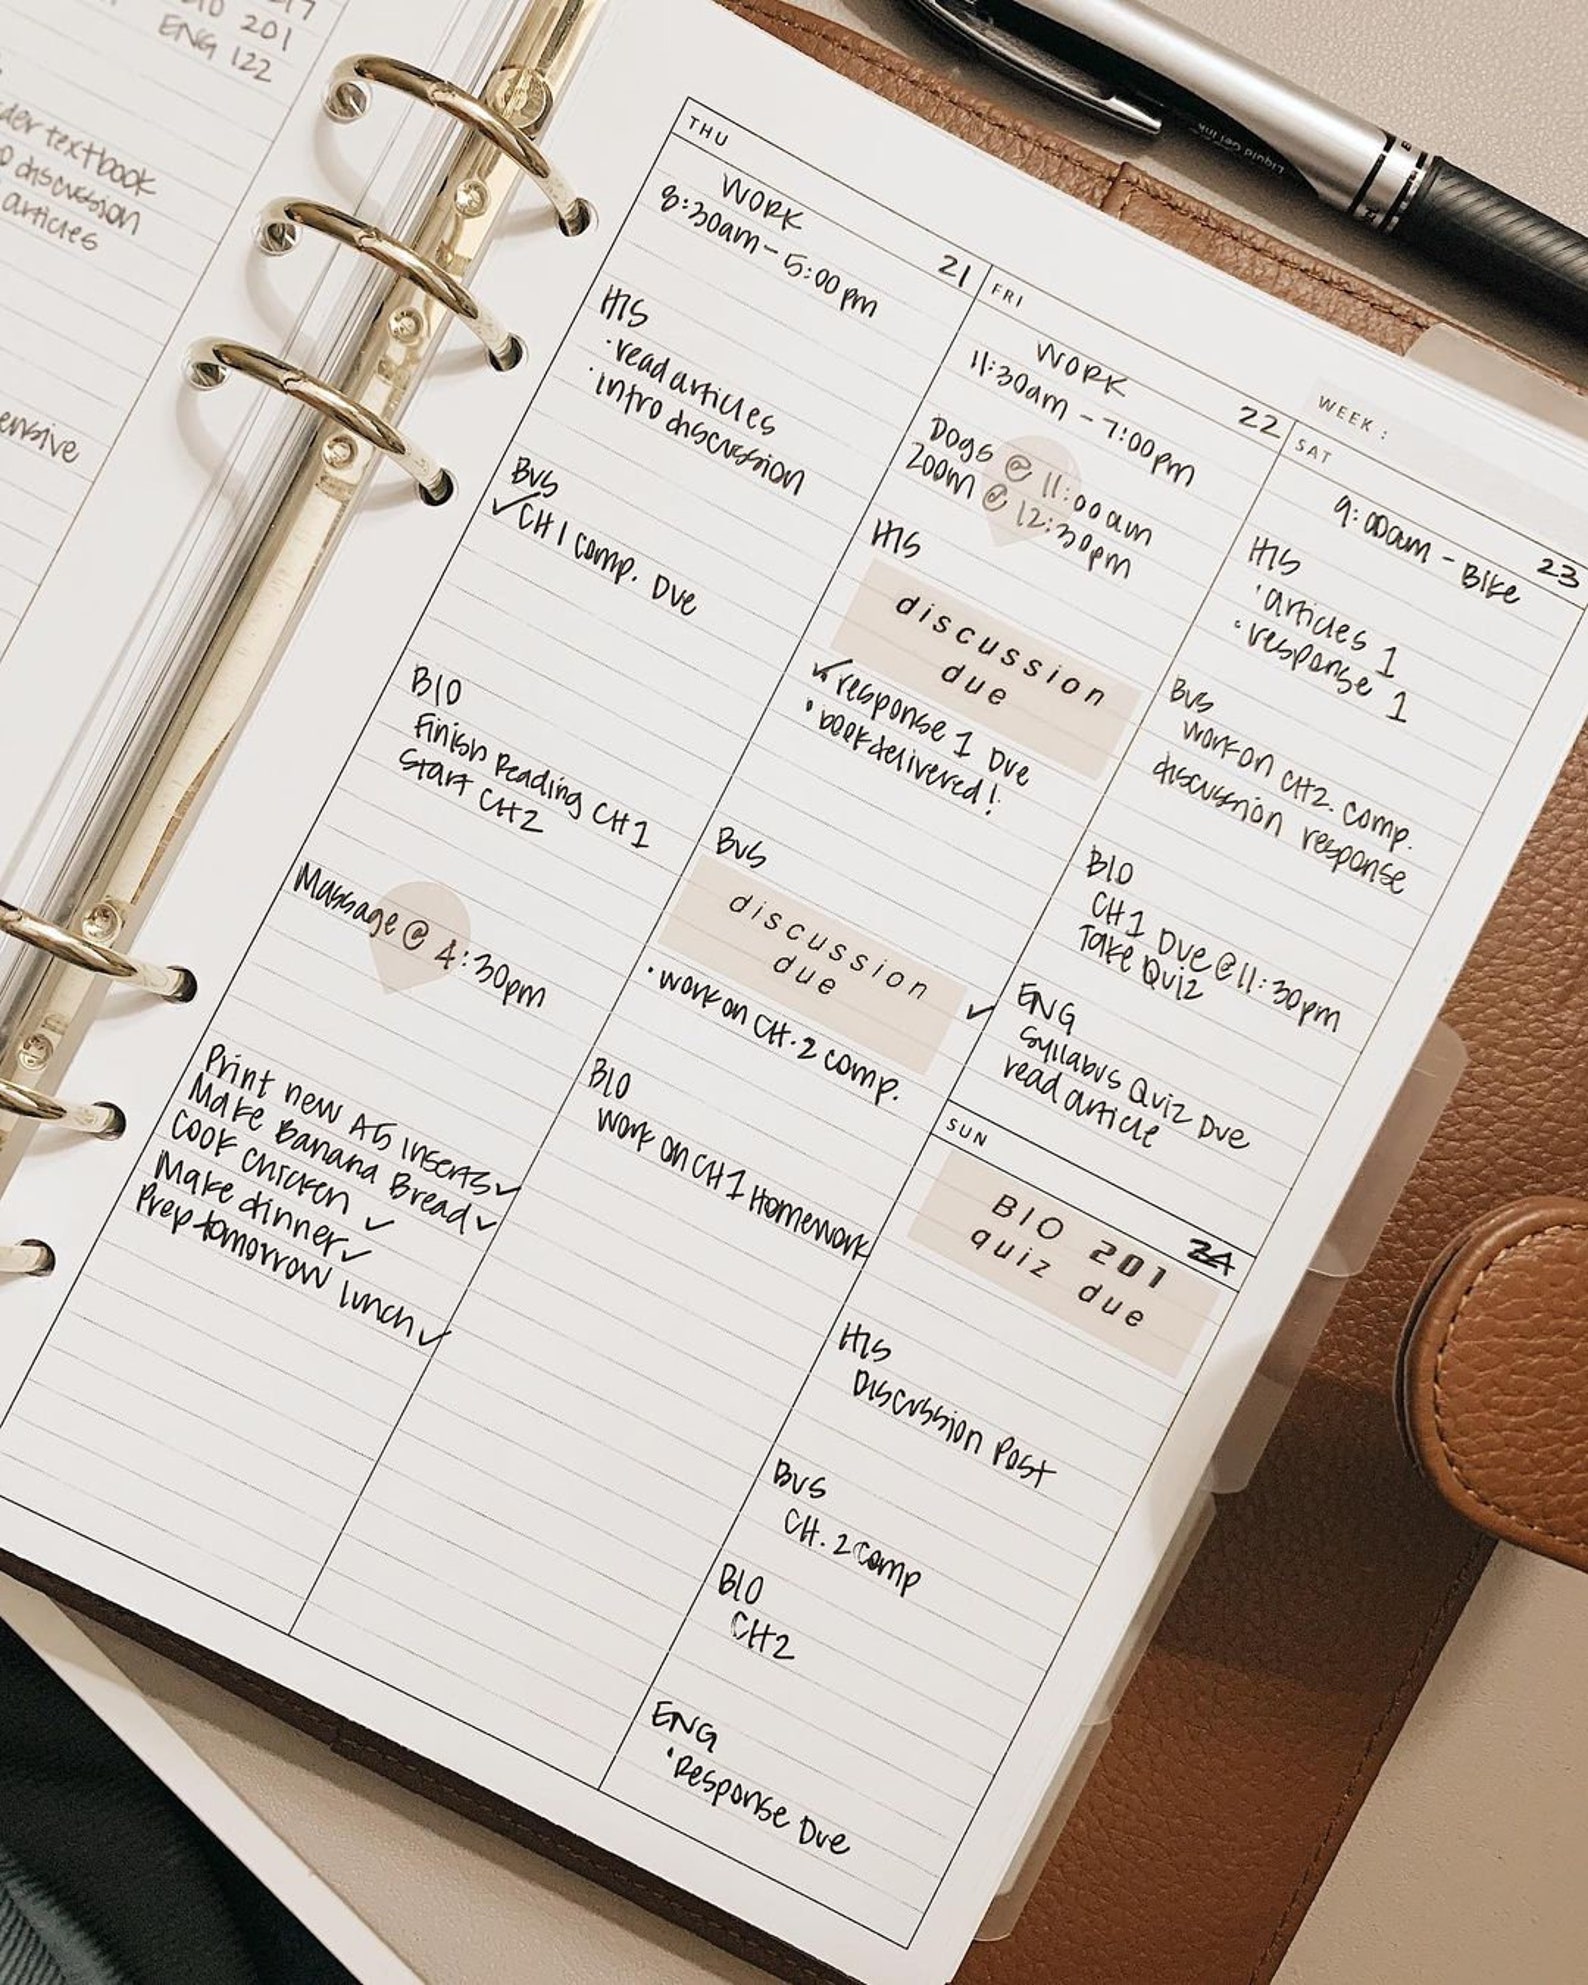 201
ENG 122
textbook
discussion
articles
THU
21
WORK
8:30am - 5:00pm
HIS
• read articles
• intro discussion
BUS
✓ CH 1 comp. Due
BIO
Finish Reading CH 1
Start CH2
Massage @ 4:30pm
Print new A5 inserts ✓
Make Banana Bread ✓
Cook chicken ✓
Make dinner ✓
Prep tomorrow lunch ✓
FRI
22
WORK
11:30am - 7:00pm
Dogs @ 11:00am
Zoom @ 12:30pm
HIS
discussion
due
✓ response 1 Due
• book delivered!
BUS
discussion
due
✓
• work on CH. 2 comp.
BIO
Work on CH 1 Homework
WEEK:
SAT
23
9:00am - Bike
HIS
• articles 1
• response 1
BUS
work on CH2. comp.
discussion response
BIO
CH 1 Due @ 11:30pm
Take Quiz
ENG
Syllabus Quiz Due
read article
SUN
24
BIO 201
quiz due
HIS
Discussion Post
BUS
CH. 2 comp
BIO
CH2
ENG
• Response Due
Liquid Gel Ink